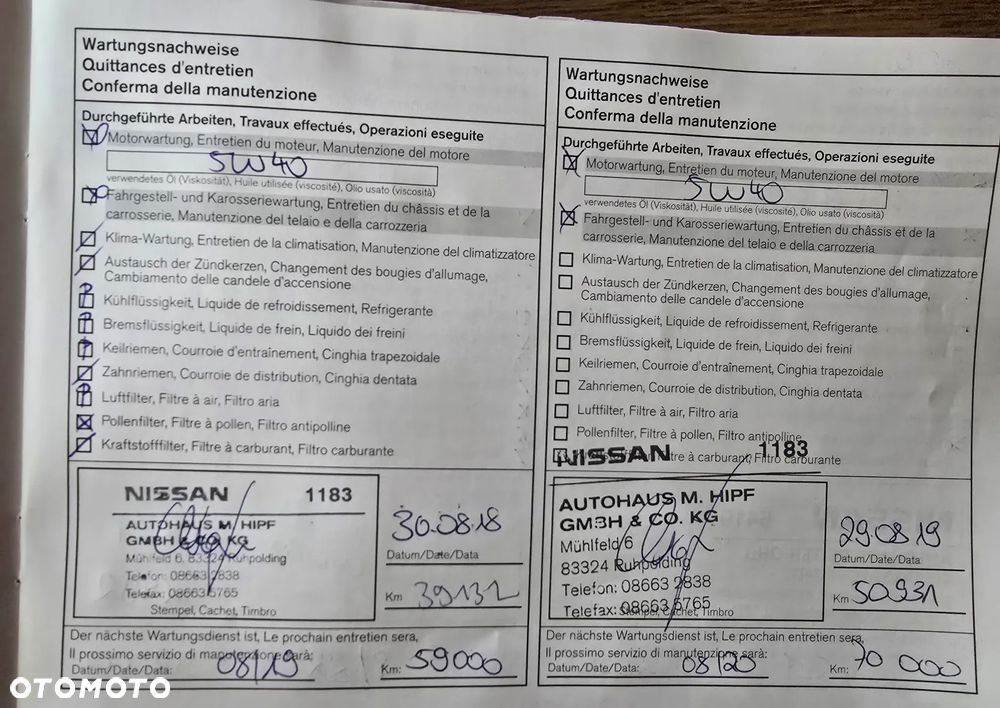 Wartungsnachweise
Quittances d'entretien
Conferma della manutenzione
Durchgeführte Arbeiten, Travaux effectués, Operazioni eseguite
Motorwartung, Entretien du moteur, Manutenzione del motore
5W40
verwendetes Öl (Viskosität), Huile utilisée (viscosité), Olio usato (viscosità)
Fahrgestell- und Karosseriewartung, Entretien du châssis et de la
carrosserie, Manutenzione del telaio e della carrozzeria
Klima-Wartung, Entretien de la climatisation, Manutenzione del climatizzatore
Austausch der Zündkerzen, Changement des bougies d'allumage,
Cambiamento delle candele d'accensione
Kühlflüssigkeit, Liquide de refroidissement, Refrigerante
Bremsflüssigkeit, Liquide de frein, Liquido dei freini
Keilriemen, Courroie d'entraînement, Cinghia trapezoidale
Zahnriemen, Courroie de distribution, Cinghia dentata
Luftfilter, Filtre à air, Filtro aria
Pollenfilter, Filtre à pollen, Filtro antipolline
Kraftstofffilter, Filtre à carburant, Filtro carburante
NISSAN 1183
AUTOHAUS M. HIPF
GMBH & CO. KG
Mühlfeld 6, 83324 Ruhpolding
Telefon: 08663 2838
Telefax: 08663 5765
Stempel, Cachet, Timbro
30.08.18
Datum/Date/Data
Km 39132
Der nächste Wartungsdienst ist, Le prochain entretien sera,
Il prossimo servizio di manutenzione sarà:
Datum/Date/Data: 08/19 Km: 59000
Wartungsnachweise
Quittances d'entretien
Conferma della manutenzione
Durchgeführte Arbeiten, Travaux effectués, Operazioni eseguite
Motorwartung, Entretien du moteur, Manutenzione del motore
5W40
verwendetes Öl (Viskosität), Huile utilisée (viscosité), Olio usato (viscosità)
Fahrgestell- und Karosseriewartung, Entretien du châssis et de la
carrosserie, Manutenzione del telaio e della carrozzeria
Klima-Wartung, Entretien de la climatisation, Manutenzione del climatizzatore
Austausch der Zündkerzen, Changement des bougies d'allumage,
Cambiamento delle candele d'accensione
Kühlflüssigkeit, Liquide de refroidissement, Refrigerante
Bremsflüssigkeit, Liquide de frein, Liquido dei freini
Keilriemen, Courroie d'entraînement, Cinghia trapezoidale
Zahnriemen, Courroie de distribution, Cinghia dentata
Luftfilter, Filtre à air, Filtro aria
Pollenfilter, Filtre à pollen, Filtro antipolline
Filtre à carburant, Filtro carburante
NISSAN 1183
AUTOHAUS M. HIPF
GMBH & CO. KG
Mühlfeld 6
83324 Ruhpolding
Telefon: 08663 2838
Telefax: 08663 5765
Stempel, Cachet, Timbro
29.08.19
Datum/Date/Data
Km 50931
Der nächste Wartungsdienst ist, Le prochain entretien sera,
Il prossimo servizio di manutenzione sarà:
Datum/Date/Data: 08/20 Km: 70 000
OTOMOTO